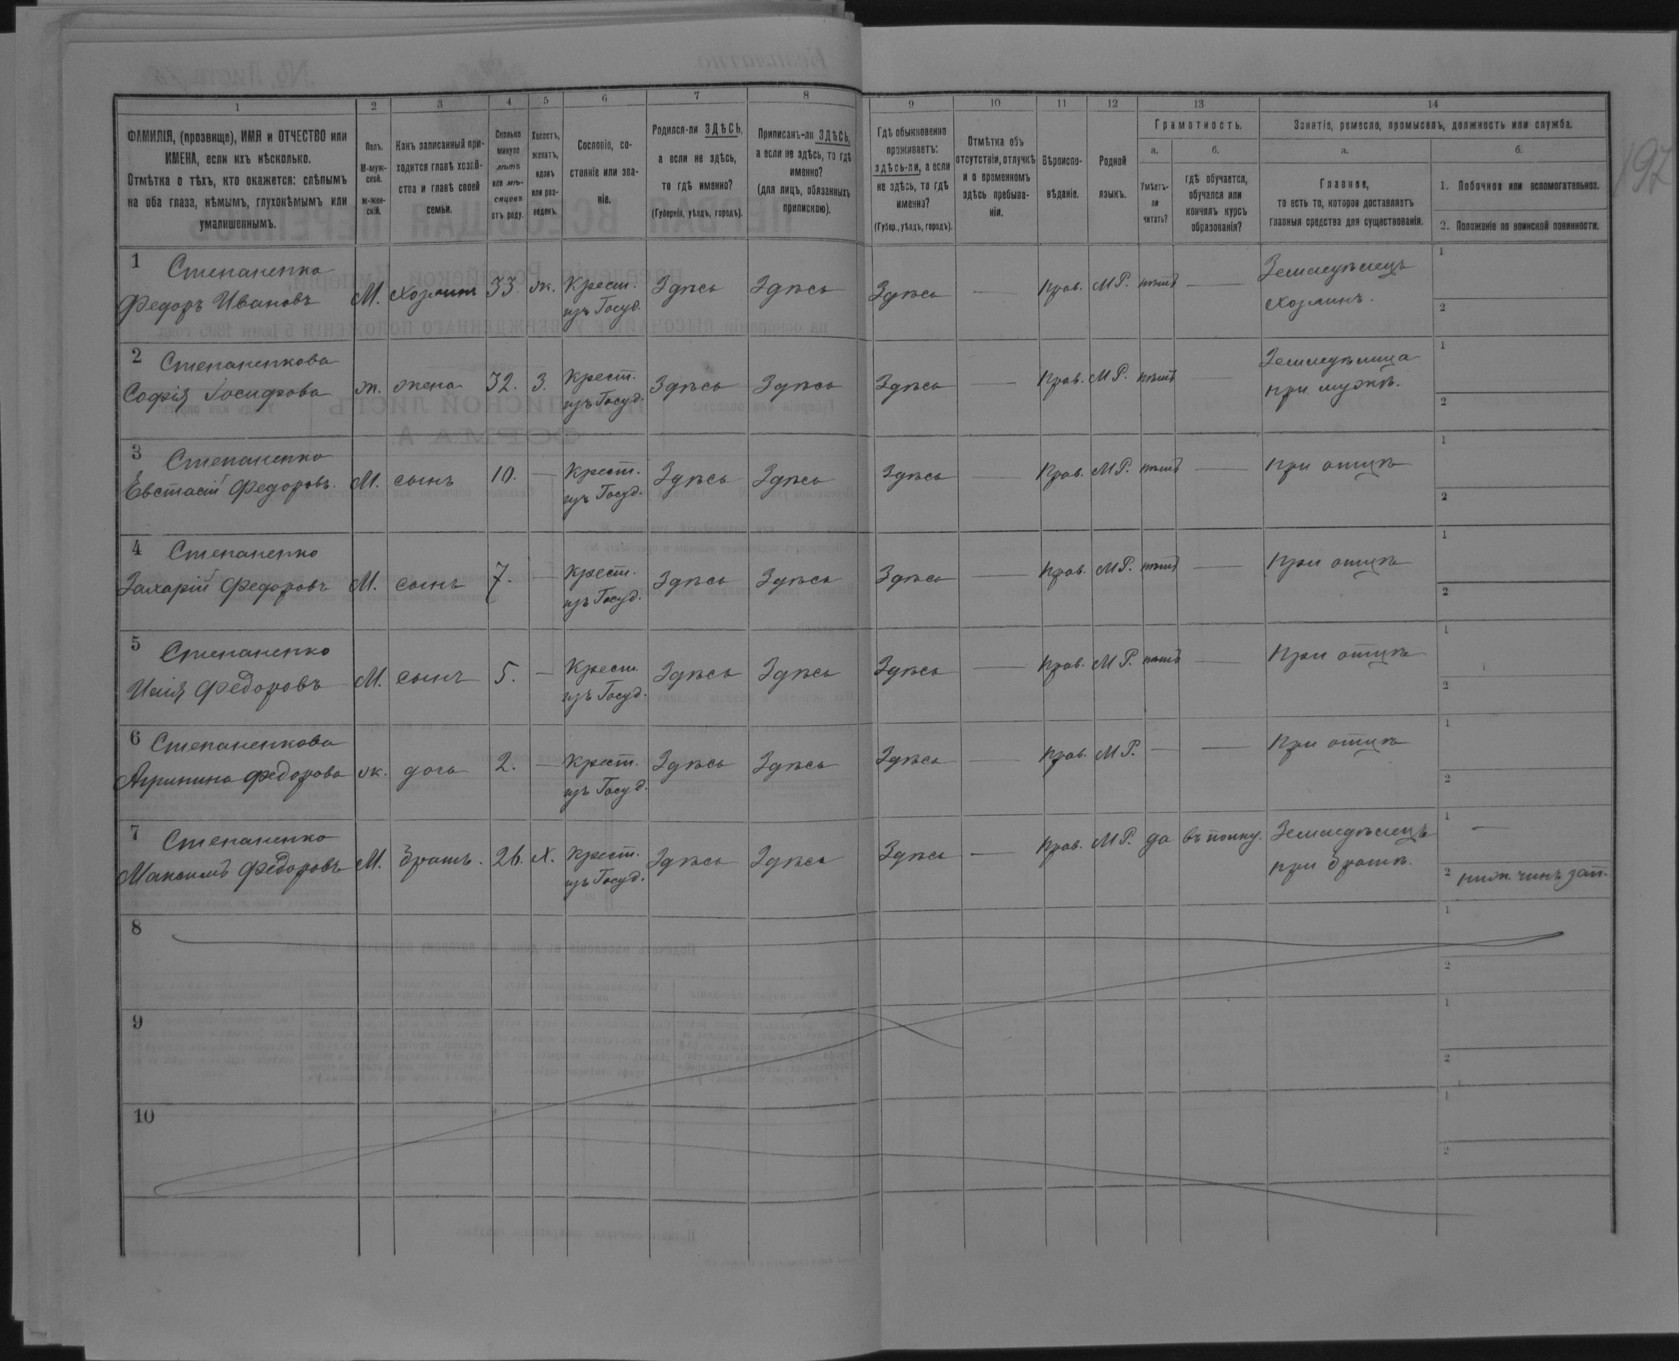 192
1 2 3 4 5 6 7 8 9 10 11 12 13 14
ФАМИЛІЯ, (прозвище), ИМЯ и ОТЧЕСТВО или
ИМЕНА, если ихъ нѣсколько.
Отмѣтка о тѣхъ, кто окажется: слѣпымъ
на оба глаза, нѣмымъ, глухонѣмымъ или
умалишеннымъ.
Полъ.
М-муж-
ской.
ж-жен-
скій.
Какъ записанный при-
ходится главѣ хозяй-
ства и главѣ своей
семьи.
Сколько
минуло
лѣтъ
или мѣ-
сяцевъ
отъ роду.
Холостъ,
женатъ,
вдовъ
или раз-
веденъ.
Сословіе, со-
стояніе или зва-
ніе.
Родился-ли ЗДѢСЬ,
а если не здѣсь,
то гдѣ именно?
(Губернія, уѣздъ, городъ).
Приписанъ-ли ЗДѢСЬ,
а если не здѣсь, то гдѣ
именно?
(для лицъ, обязанныхъ
припискою).
Гдѣ обыкновенно
проживаетъ:
здѣсь-ли, а если
не здѣсь, то гдѣ
именно?
(Губер., уѣздъ, городъ).
Отмѣтка объ
отсутствіи, отлучкѣ
и о временномъ
здѣсь пребыва-
ніи.
Вѣроиспо-
вѣданіе.
Родной
языкъ.
Грамотность.
а.
Умѣетъ-
ли
читать?
б.
гдѣ обучается,
обучался или
кончилъ курсъ
образованія?
Занятіе, ремесло, промыселъ, должность или служба.
а.
Главное,
то есть то, которое доставляетъ
главныя средства для существованія.
б.
1. Побочное или вспомогательное.
2. Положеніе по воинской повинности.
1 Степаненко
Федоръ Ивановъ М. хозяинъ 33 ж. Крест. изъ Госуд. Здѣсь Здѣсь Здѣсь — Прав. М.Р. нѣтъ — Земледѣлецъ
хозяинъ.
1
2
2 Степаненкова
Софія Іосифова ж. жена 32. З. Крест. изъ Госуд. Здѣсь Здѣсь Здѣсь — Прав. М.Р. нѣтъ — Земледѣлица
при мужѣ.
1
2
3 Степаненко
Евстафій Федоровъ. М. сынъ 10. — Крест. изъ Госуд. Здѣсь Здѣсь Здѣсь — Прав. М.Р. нѣтъ — При отцѣ
1
2
4 Степаненко
Захарій Федоровъ М. сынъ 7. — Крест. изъ Госуд. Здѣсь Здѣсь Здѣсь — Прав. М.Р. нѣтъ — При отцѣ
1
2
5 Степаненко
Илія Федоровъ М. сынъ 5. — Крест. изъ Госуд. Здѣсь Здѣсь Здѣсь — Прав. М.Р. нѣтъ — При отцѣ
1
2
6 Степаненкова
Агрипина Федорова ж. дочь 2. — Крест. изъ Госуд. Здѣсь Здѣсь Здѣсь — Прав. М.Р. — — При отцѣ
1
2
7 Степаненко
Максимъ Федоровъ М. Братъ. 26. Х. Крест. изъ Госуд. Здѣсь Здѣсь Здѣсь — Прав. М.Р. да въ полку. Земледѣлецъ
при братѣ.
1 —
2 нижн. чинъ зап.
8
1
2
9
1
2
10
1
2